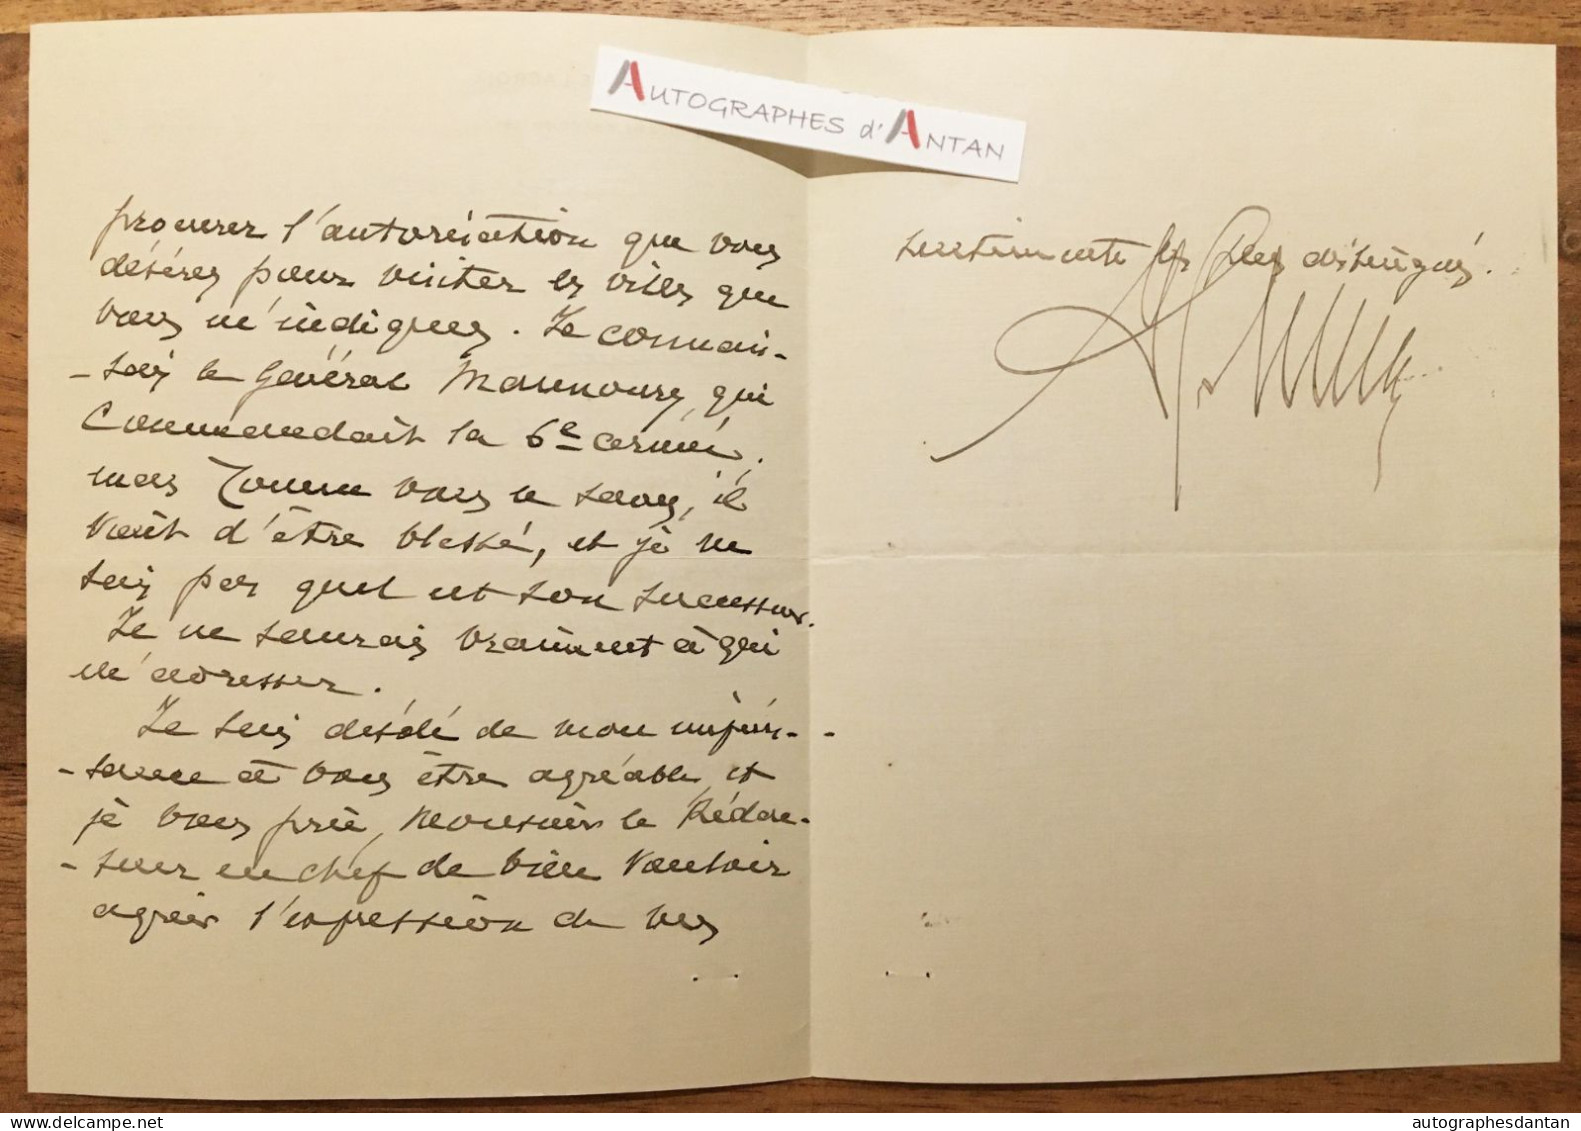 AUTOGRAPHES d'ANTAN
procurer l'autorisation que vous
désirez pour visiter les villes que
vous m'indiquez. Je connais-
-sais le Général Maunoury, qui
commandait la 6e armée,
mais comme vous le savez, il
vient d'être blessé, et je ne
sais pas quel est son successeur.
Je ne saurais vraiment à qui
m'adresser.
Je suis désolé de mon impuis-
-sance à vous être agréable, et
je vous prie, Monsieur le Rédac-
-teur en chef de bien vouloir
agréer l'expression de mes
sentiments les plus distingués.
autographesdantan